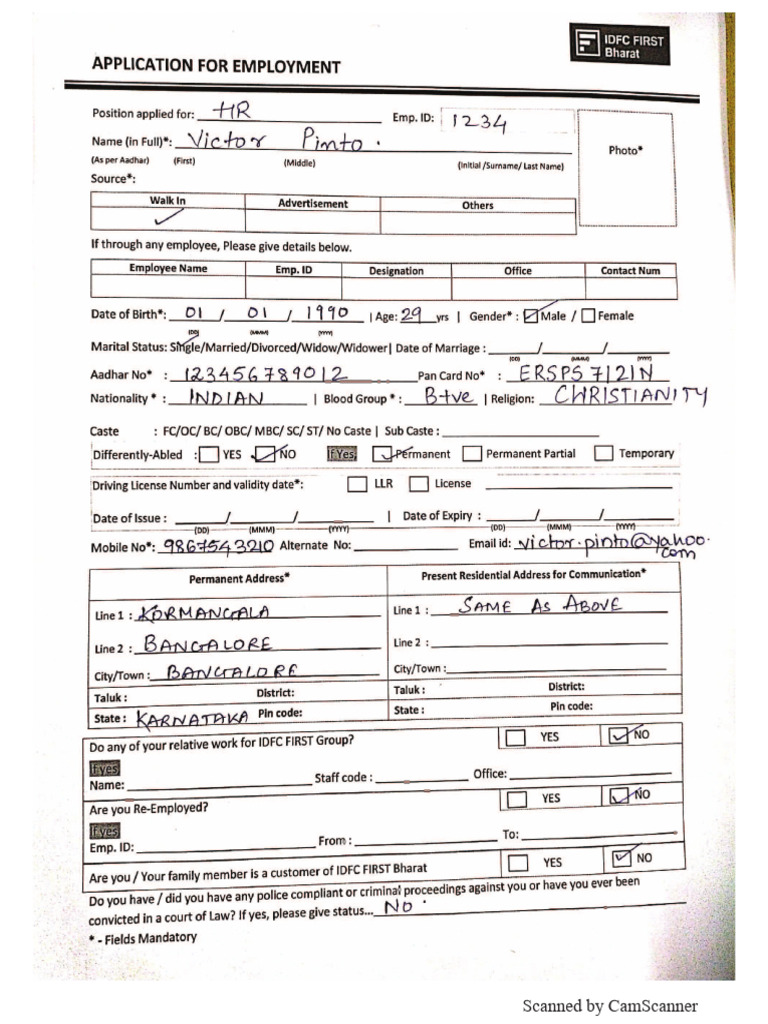 IDFC FIRST
Bharat
APPLICATION FOR EMPLOYMENT
Position applied for: HR Emp. ID: 1234
Name (in Full)*: Victor Pinto. Photo*
(As per Aadhar) (First) (Middle) (Initial /Surname/ Last Name)
Source*:
Walk In Advertisement Others
If through any employee, Please give details below.
Employee Name Emp. ID Designation Office Contact Num
Date of Birth*: 01 / 01 / 1990 | Age: 29 yrs | Gender* : Male / Female
(DD) (MMM) (YYY)
Marital Status: Single/Married/Divorced/Widow/Widower| Date of Marriage : / /
(DD) (MMM) (YYY)
Aadhar No* : 123456789012 Pan Card No* : ERSPS7121N
Nationality * : INDIAN | Blood Group * : B+ve | Religion: CHRISTIANITY
Caste : FC/OC/ BC/ OBC/ MBC/ SC/ ST/ No Caste | Sub Caste :
Differently-Abled : YES NO If Yes, Permanent Permanent Partial Temporary
Driving License Number and validity date*: LLR License
Date of Issue : / / | Date of Expiry : / /
(DD) (MMM) (YYY) (DD) (MMM) (YYY)
Mobile No*: 9867543210 Alternate No: Email id: victor.pinto@yahoo.
com
Permanent Address* Present Residential Address for Communication*
Line 1 : KORMANGALA Line 1 : SAME AS ABOVE
Line 2 : BANGALORE Line 2 :
City/Town : BANGALORE City/Town :
Taluk : District: Taluk : District:
State : KARNATAKA Pin code: State : Pin code:
Do any of your relative work for IDFC FIRST Group? YES NO
If yes
Name: Staff code : Office:
Are you Re-Employed? YES NO
If yes
Emp. ID: From : To:
Are you / Your family member is a customer of IDFC FIRST Bharat YES NO
Do you have / did you have any police compliant or criminal proceedings against you or have you ever been
convicted in a court of Law? If yes, please give status... NO.
* - Fields Mandatory
Scanned by CamScanner